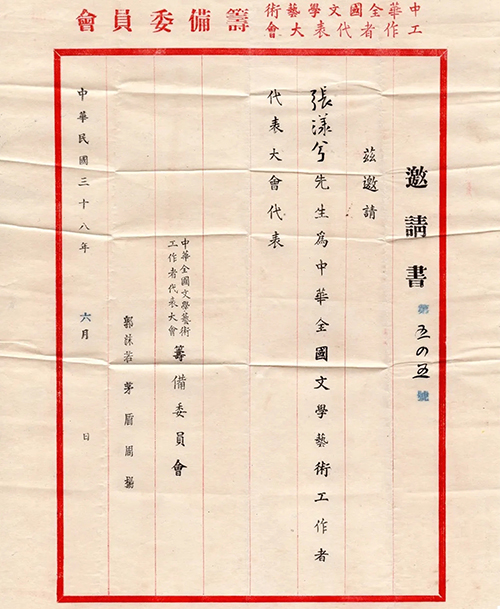 中華全國文學藝術
工作者代表大會
籌備委員會
邀請書
第五〇五號
茲邀請
張漾兮先生為中華全國文學藝術工作者
代表大會代表
中華全國文學藝術
工作者代表大會
籌備委員會
郭沫若 茅盾 周揚
中華民國三十八年 六月 日